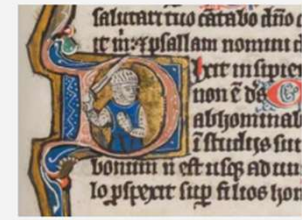 salutari tuo cātabo dño
it m̄ ⁊ psallam nomini d
Dixit insipien
non ē ds C
abhominab
ī studiis sui
bonum n̄ est usq ad unu
lo pspexit sup filios hom